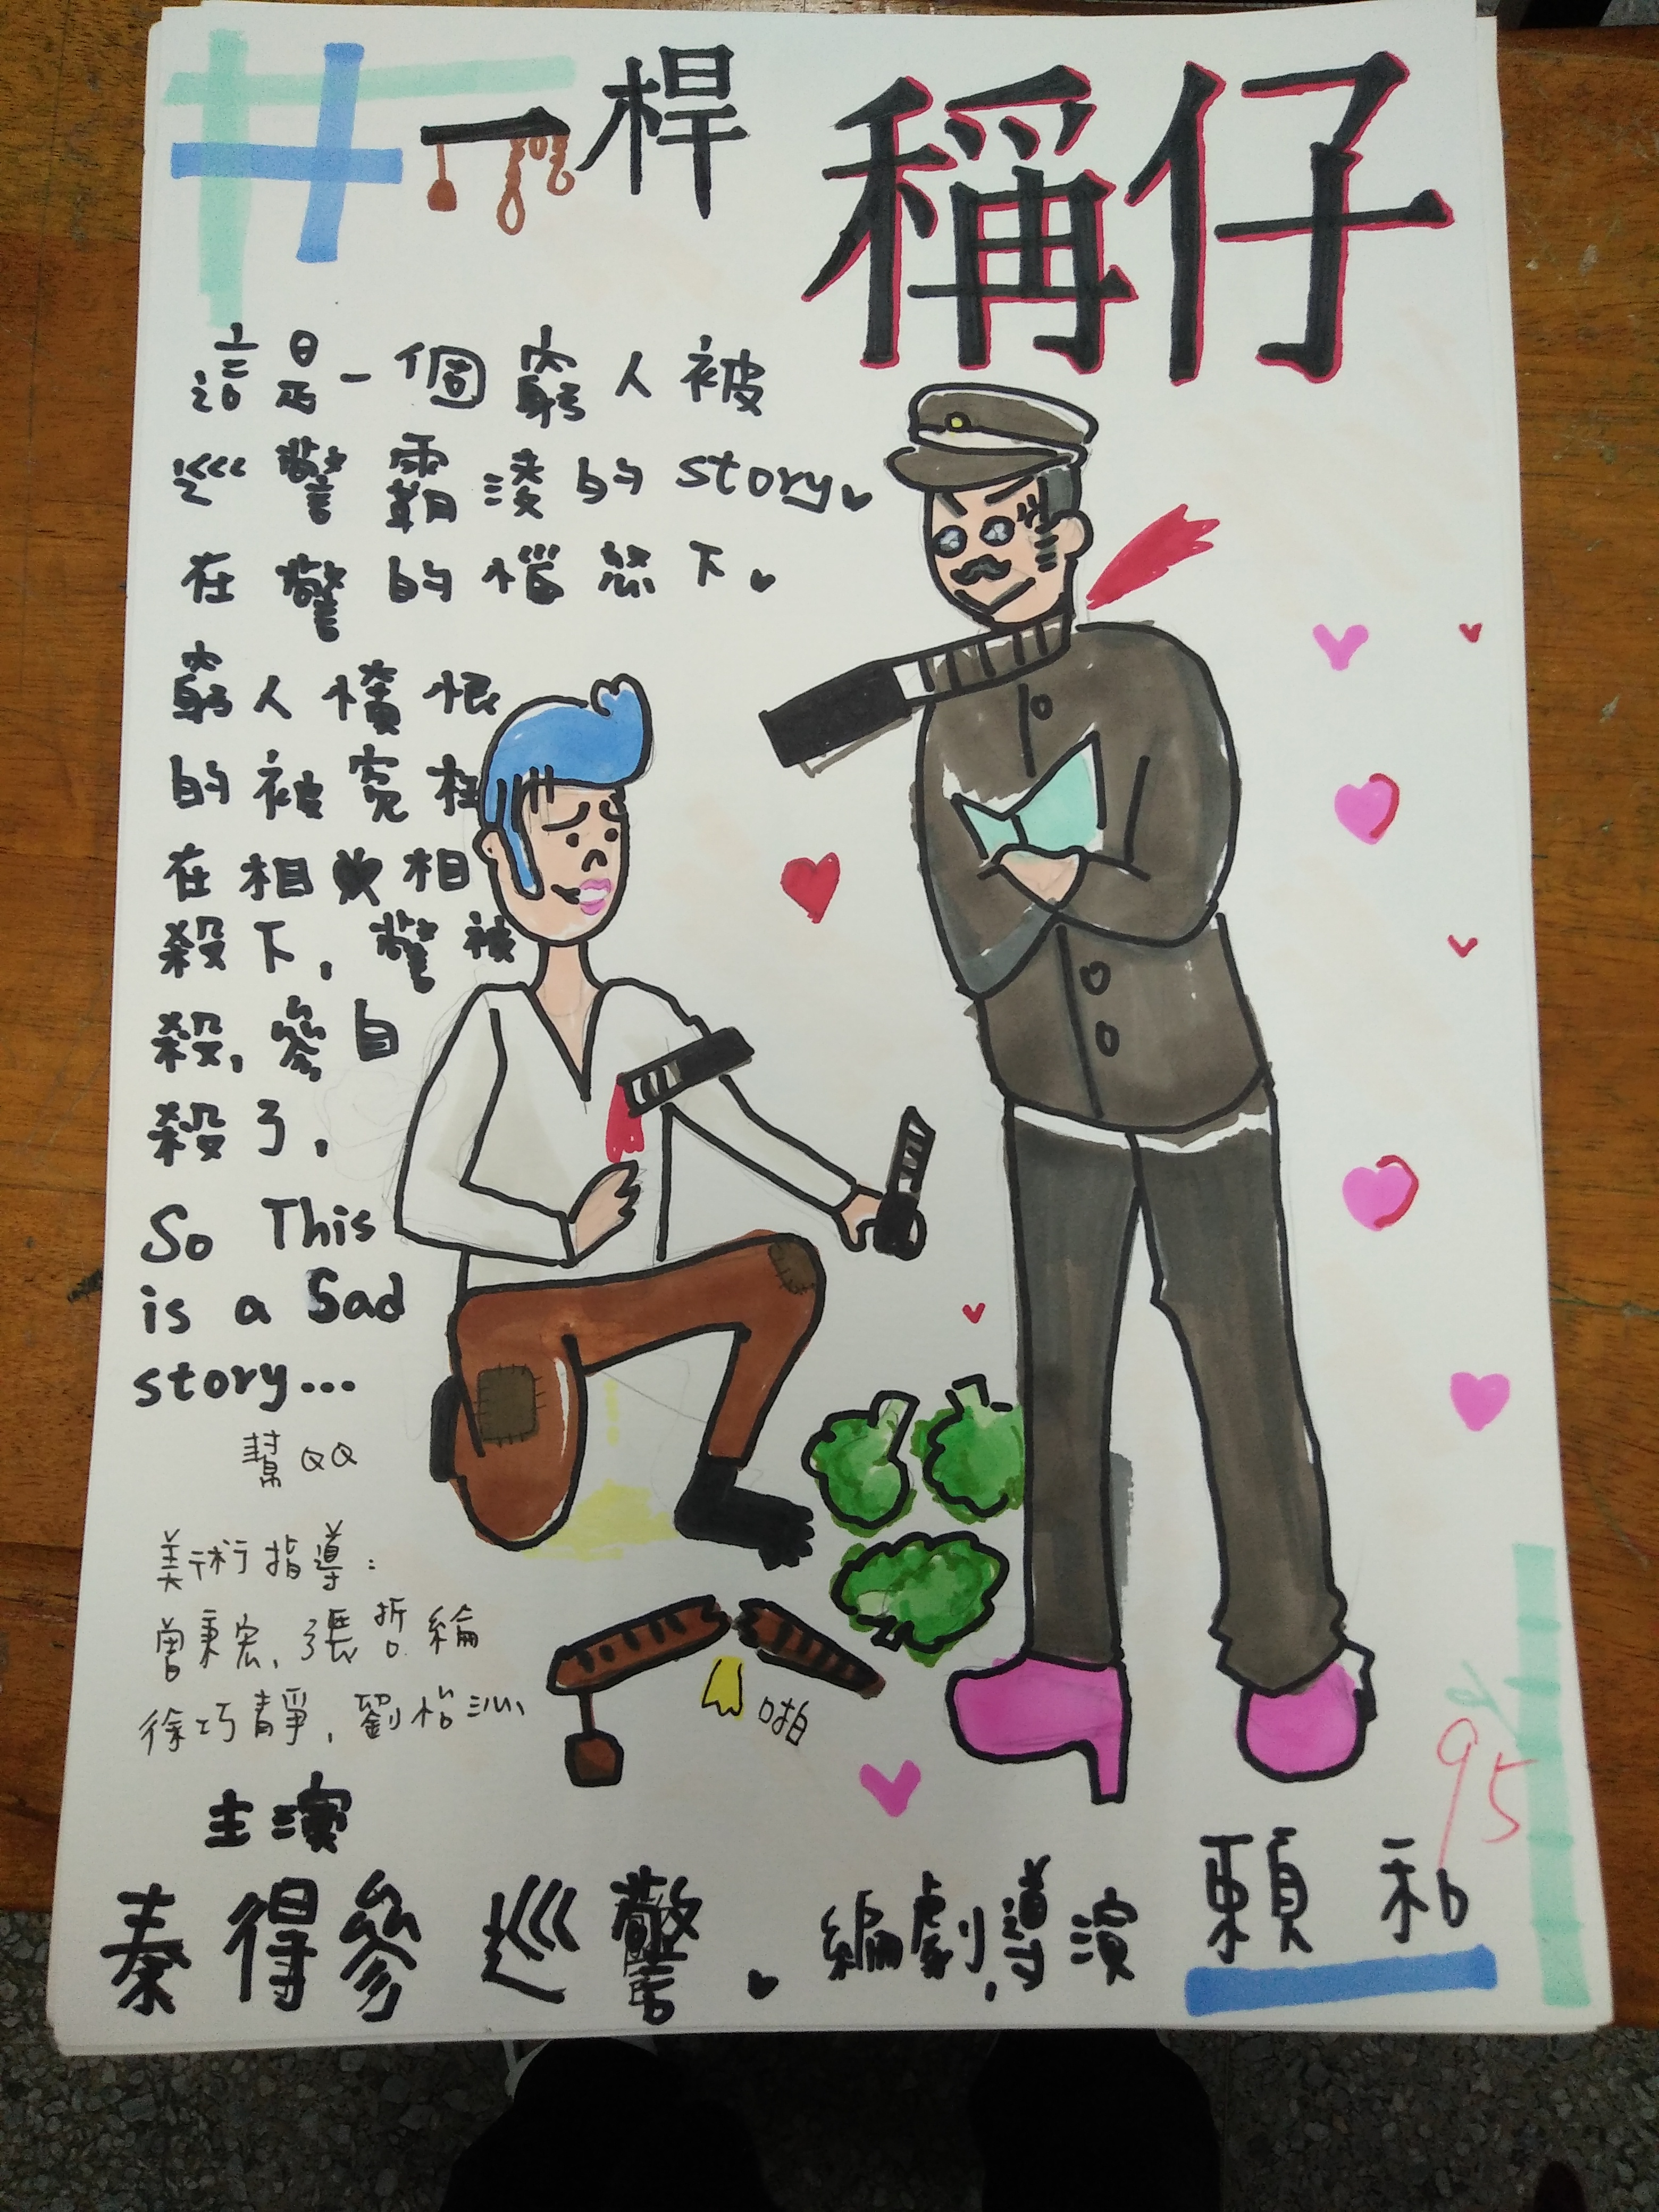 #一桿 稱仔
這是一個窮人被
巡警霸凌的story
在警的惱怒下
窮人憤恨
的被冤枉
在相 相
殺下,警被
殺,參自
殺了,
So This
is a Sad
story...
幫QQ
美術指導:
曾秉宏、張哲綸
徐巧靜、劉怡沁
啪
95
主演
秦得參 巡警 編劇,導演 賴和